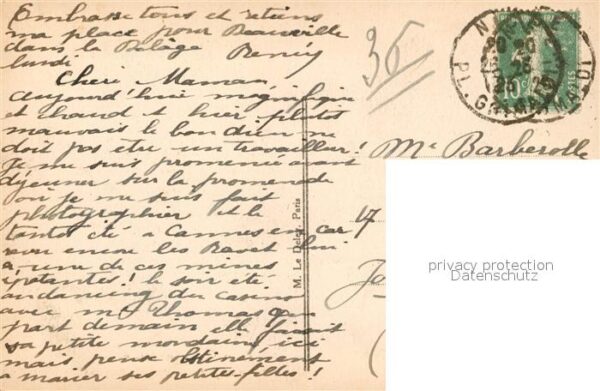 Embrasse tous et retiens
ma place pour Beauville
dans la Delâge Renée
lundi
Cheri Maman,
aujourd'hui magnifique
et chaud + hier plutot
mauvais le bon dieu ne
doit pas être un travailleur!
Je me suis promenée avant
déjeuner sur la promenade
où je me suis fait
photographier et le
tantot été à Cannes en car
avec encore les
a une de ces mines
épatantes! le soir été
au dancing du casino
avec Me Thomas qui
part demain elle faisait
sa petite mondaine, ici
mais pense obstinément
a marier ses petites filles!
36
NICE
20 20
25
PL. GRIMALDI
Me Barberolle
17
M. Le Deley, Paris
privacy protection
Datenschutz